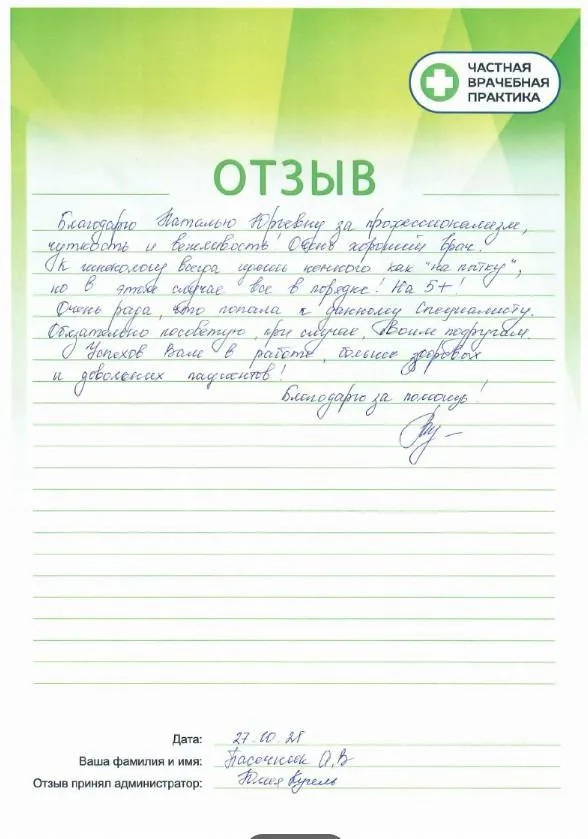 ЧАСТНАЯ
ВРАЧЕБНАЯ
ПРАКТИКА
ОТЗЫВ
Благодарю Наталью Юрьевну за профессионализм,
чуткость и вежливость! Очень хороший врач.
К гинекологу всегда идешь немного как "на пытку",
но в этом случае все в порядке! На 5+!
Очень рада, что попала к данному специалисту.
Обязательно посоветую, при случае, своим подругам.
Успехов Вам в работе, больше здоровых
и довольных пациентов!
Благодарю за помощь!
Дата: 27.10.21
Ваша фамилия и имя: А.В
Отзыв принял администратор: Юлия